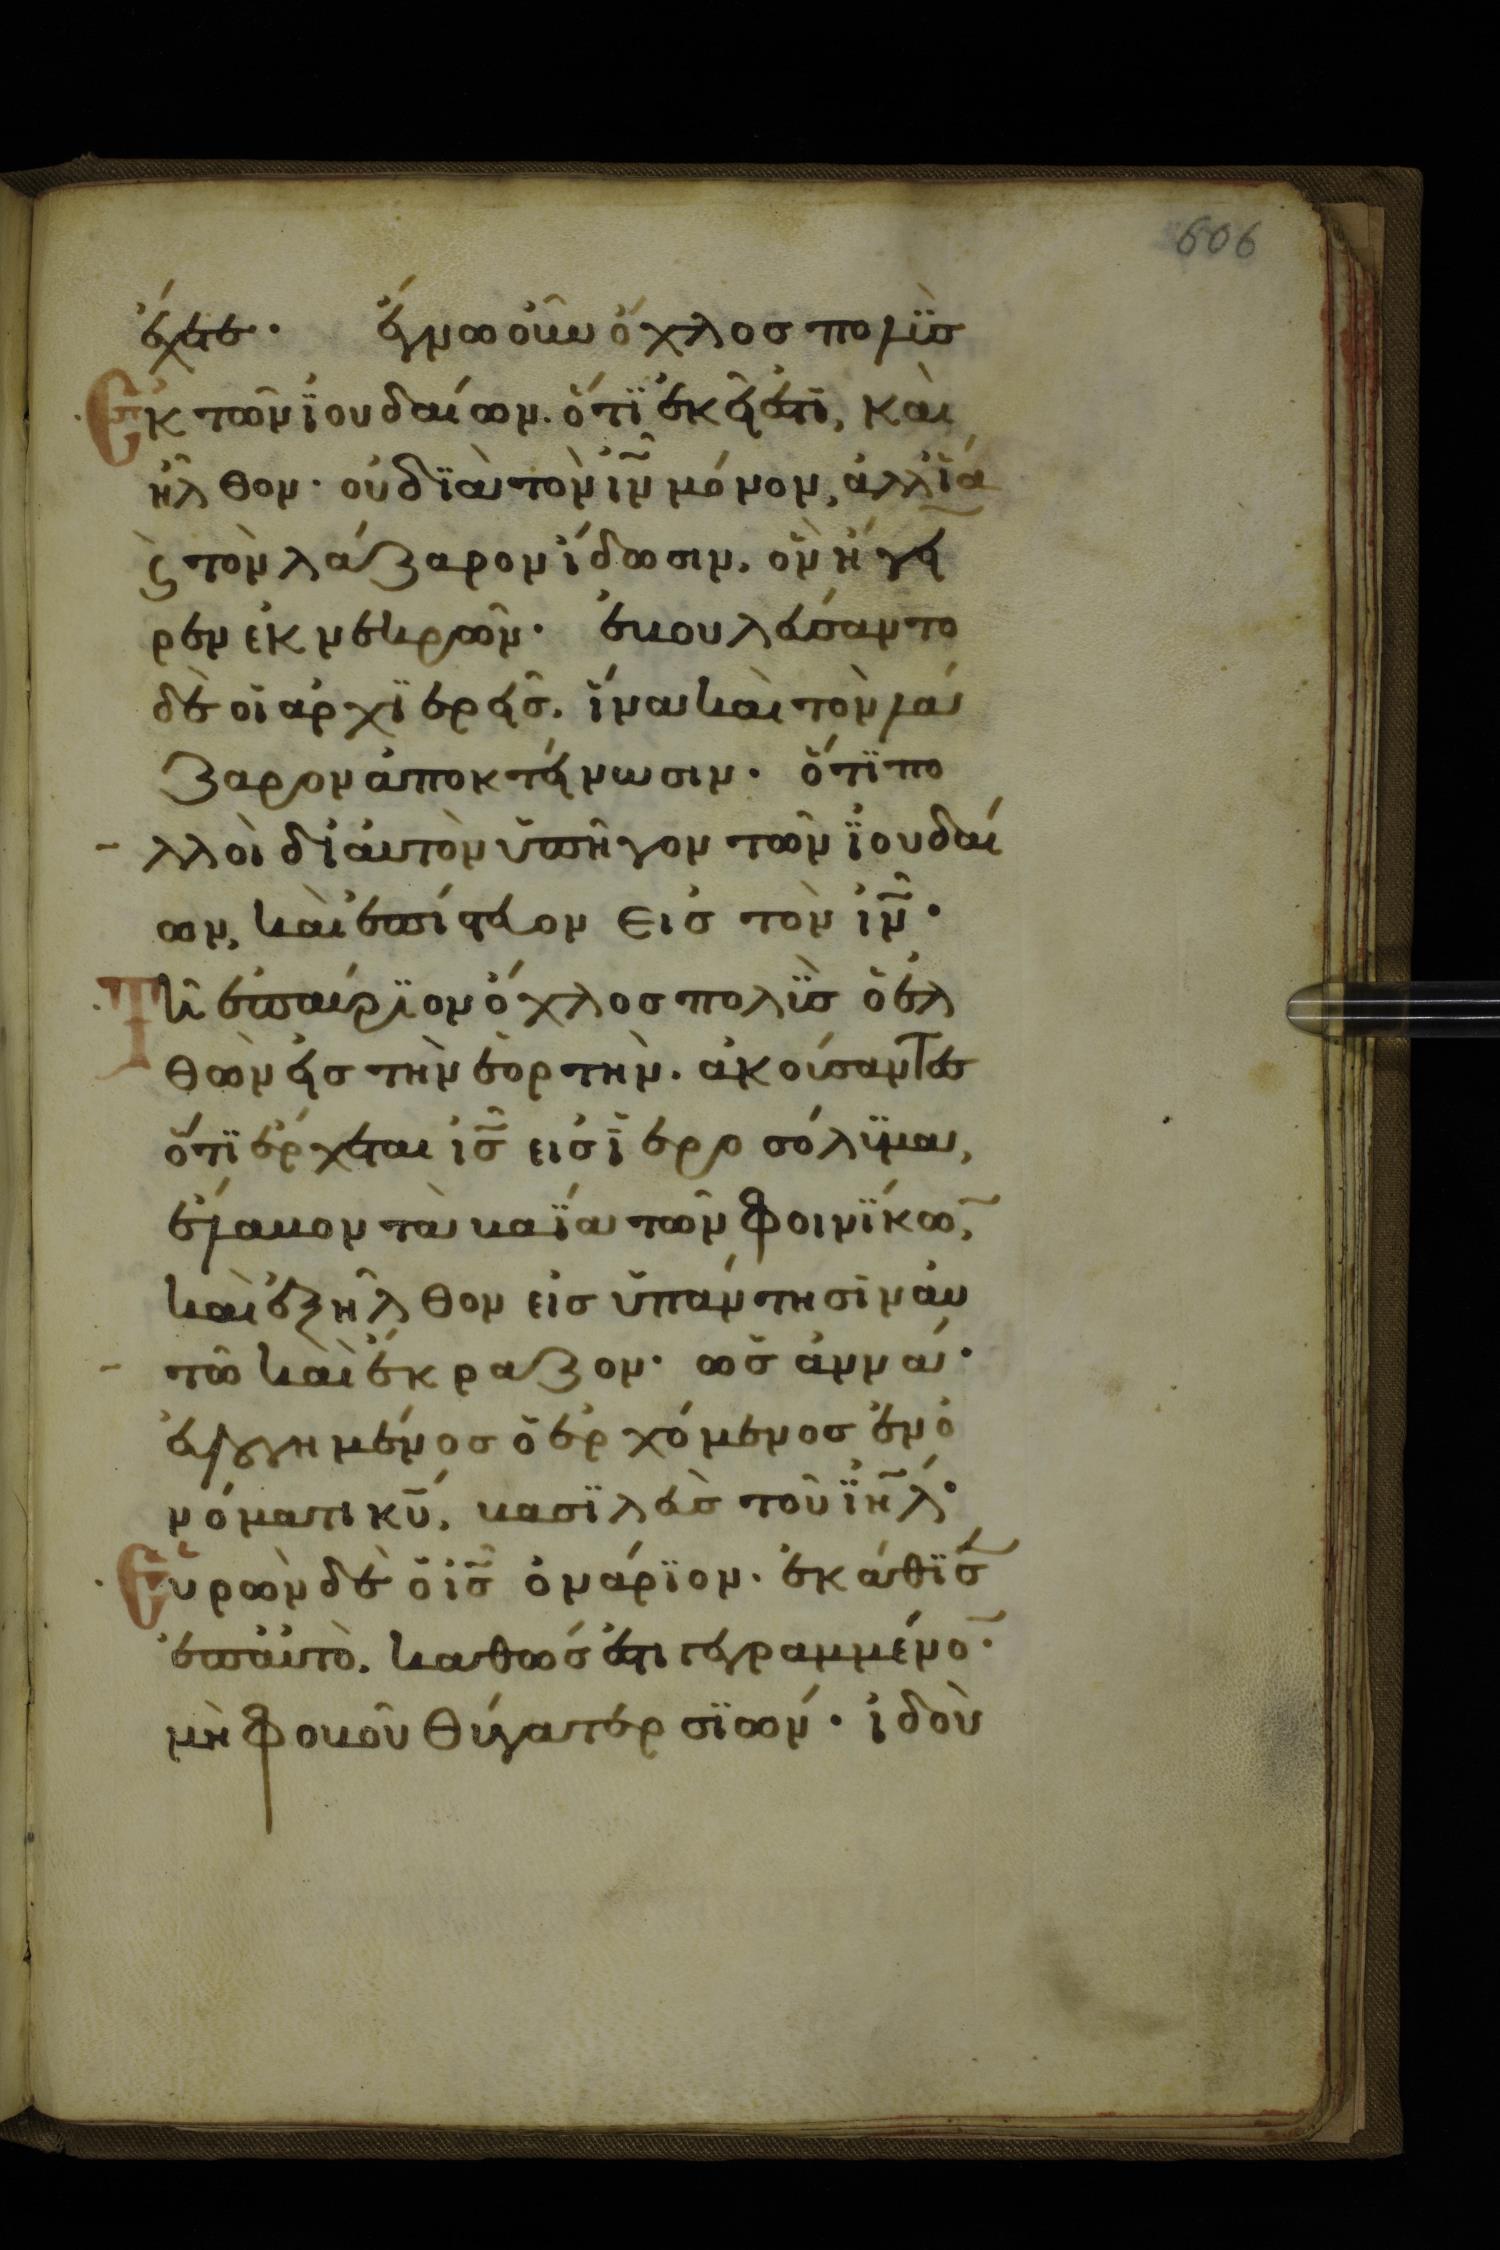 606
ἔχετε· ἔγνω οὖν ὄχλοσ πολϋσ
Ἐκ τῶν ϊουδαίων. ὅτϊ ἐκεῖ ἐστϊ, καὶ
ἦλθον· οὐ δϊὰ τὸν ἰν̅ μόνον, ἀλλ ἵνα
ϛ τὸν λάζαρον ἴδωσιν. ὃν ἤγει
ρεν ἐκ νεκρῶν· ἐβουλεύσαντο
δὲ οἱ ἀρχϊερεῖσ. ἵνα καὶ τὸν λά
ζαρον ἀποκτείνωσιν· ὅτϊ πο
λλοὶ δἰ ἀυτὸν ὑπῆγον τῶν ϊουδαί
ων, καὶ ἐπίστευον εἰσ τὸν ἰν̅·
Τῆ ἐπαύρϊον ὄχλοσ πολϋσ ὁ ἐλ
θὼν εἰσ τὴν ἑορτὴν. ἀκούσαντεσ
ὅτϊ ἔρχεται ἰσ̅ εισ ϊεροσόλϋμα,
ἔλαβον τὰ βαϊα τῶν φοινϊκω̅,
καὶ ἐξῆλθον εἰσ ὑπάντησϊν ἀυ
τῶ καὶ ἔκραζον· ὡσ ἀννά·
ἐυλογημένοσ ὁ ἐρχόμενοσ ἐν ὀ
νόματι κυ̅, βασϊλεὺσ τοῦ ϊηλ̅·
Εὑρὼν δὲ ὁ ἰσ̅ ὀνάρϊον. ἐκάθϊσε̅
ἐπ ἀυτὸ. καθώσ ἐστι γεγραμμένο̅·
μὴ φοβοῦ θύγατερ σϊών· ἰδοὺ